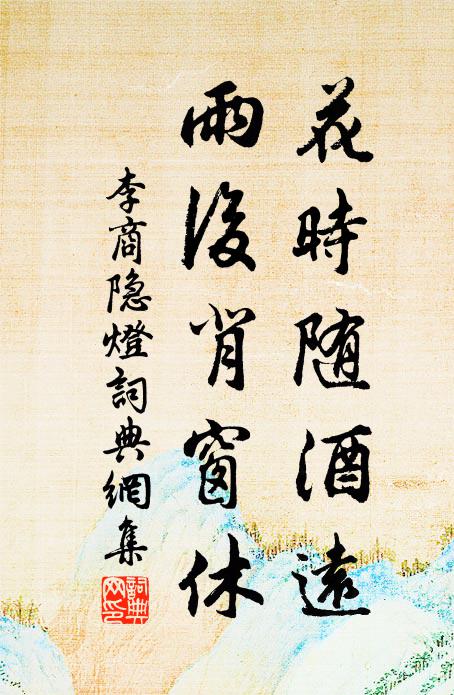 花時随酒遠
雨後背窗休
李商隐燈詞典網集
詞典網印